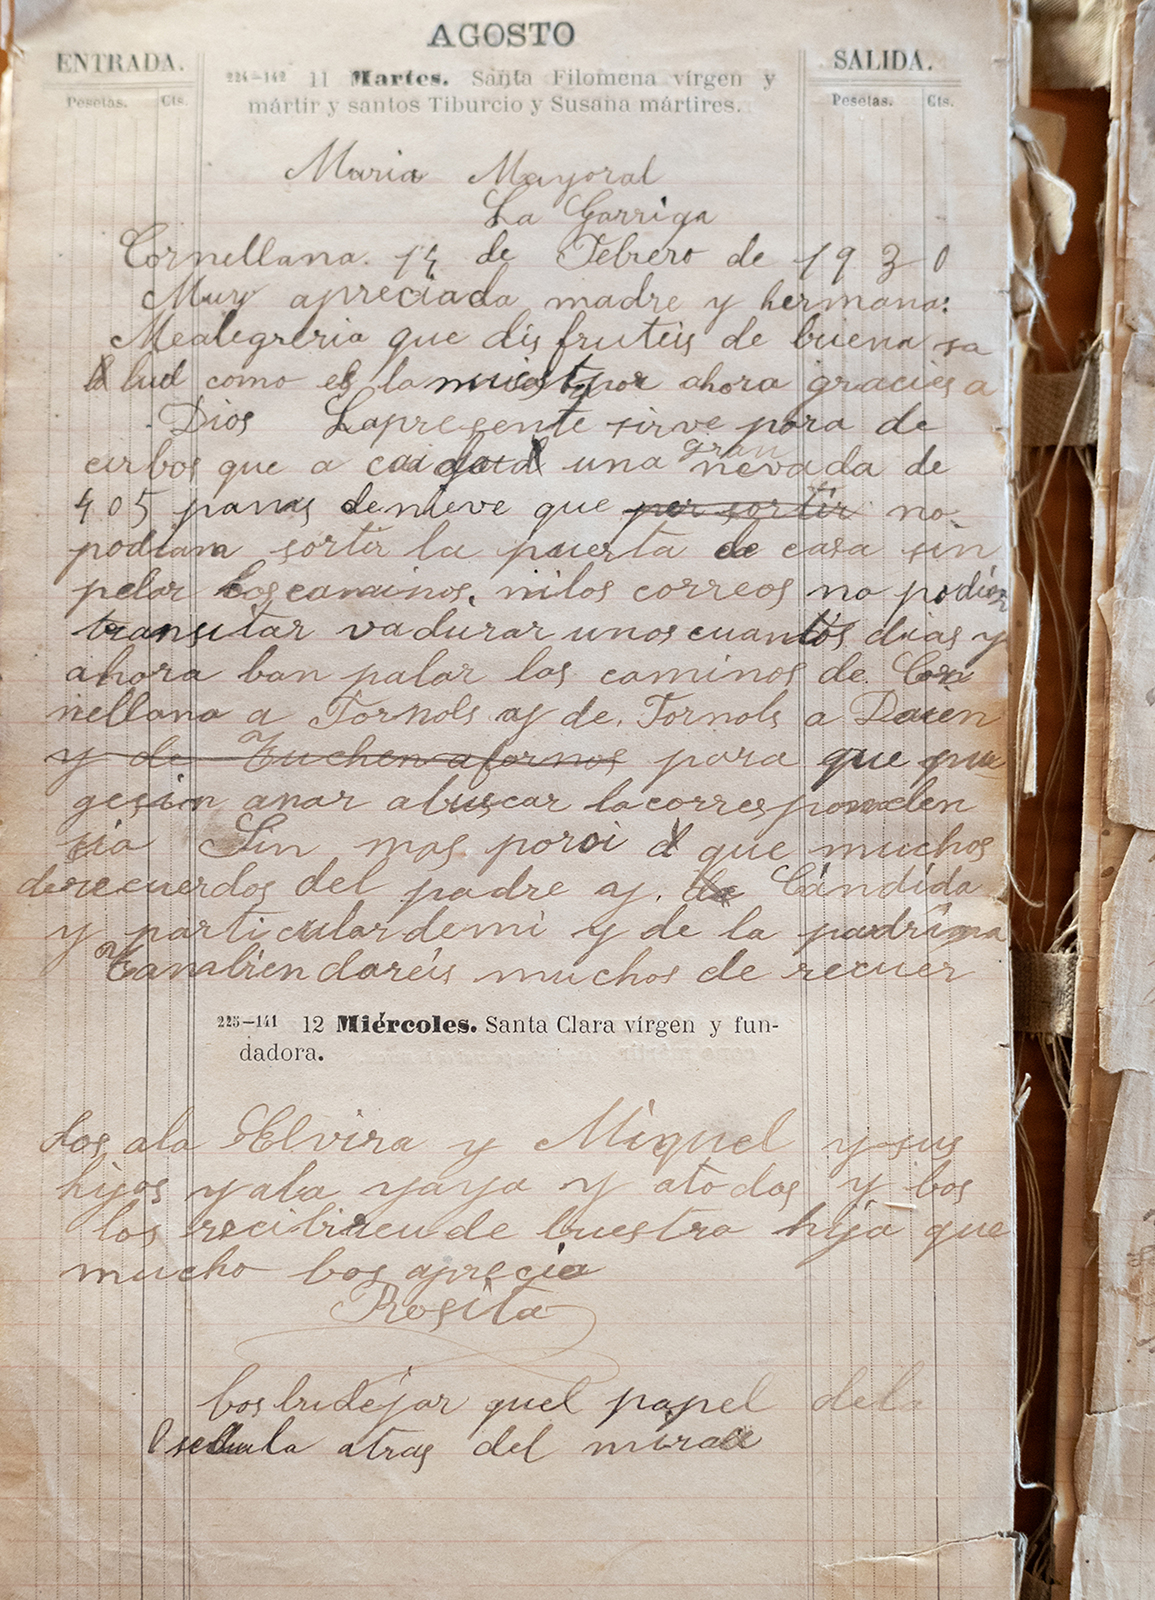 AGOSTO
ENTRADA.
Pesetas. Cts.
SALIDA.
Pesetas. Cts.
224–142 11 Martes. Santa Filomena vírgen y
mártir y santos Tiburcio y Susana mártires.
Maria Mayoral
La Garriga
Cornellana. 14 de Febrero de 1930
Muy apreciada madre y hermana:
Mealegreria que disfruteis de buena sa
lud como es la por ahora gracies a
Dios Lapresente sirve para de
cirbos que a una gran nevada de
4 o 5 pams denieve que per sortir no
podiam sortir la puerta de casa sin
pelar los caminos, nilos correos no podien
transitar vadurar unos cuantos dias y
ahora ban palar los caminos de Cor
nellana a Fornols y de, Fornols a
y de Tuchen a fornos para que pu
gesin anar abuscar la corresponden
sia Sin mas poroi que muchos
derecuerdos del padre y. de Cándida
y particulardemi y de la padrina
Tambien dareis muchos de recuer
225–141 12 Miércoles. Santa Clara vírgen y fun-
dadora.
dos ala Elvira y Miquel y sus
hijos yala yaya y atodos y bos
los recibireu de buestra hija que
mucho bos aprecia
Rosita
quel papel dela
atras del